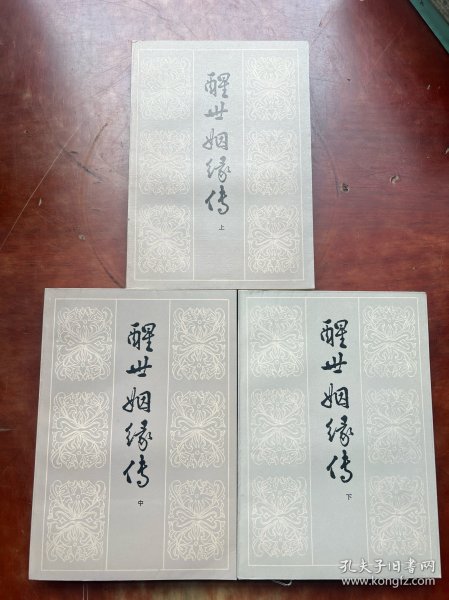 醒世姻缘传
上
醒世姻缘传
中
醒世姻缘传
下
孔夫子旧书网
www.kongfz.com